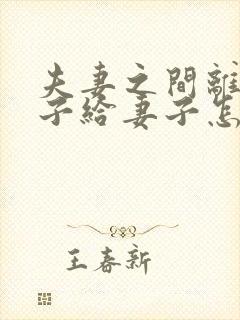 夫妻之間離
子給妻子怎
王春新